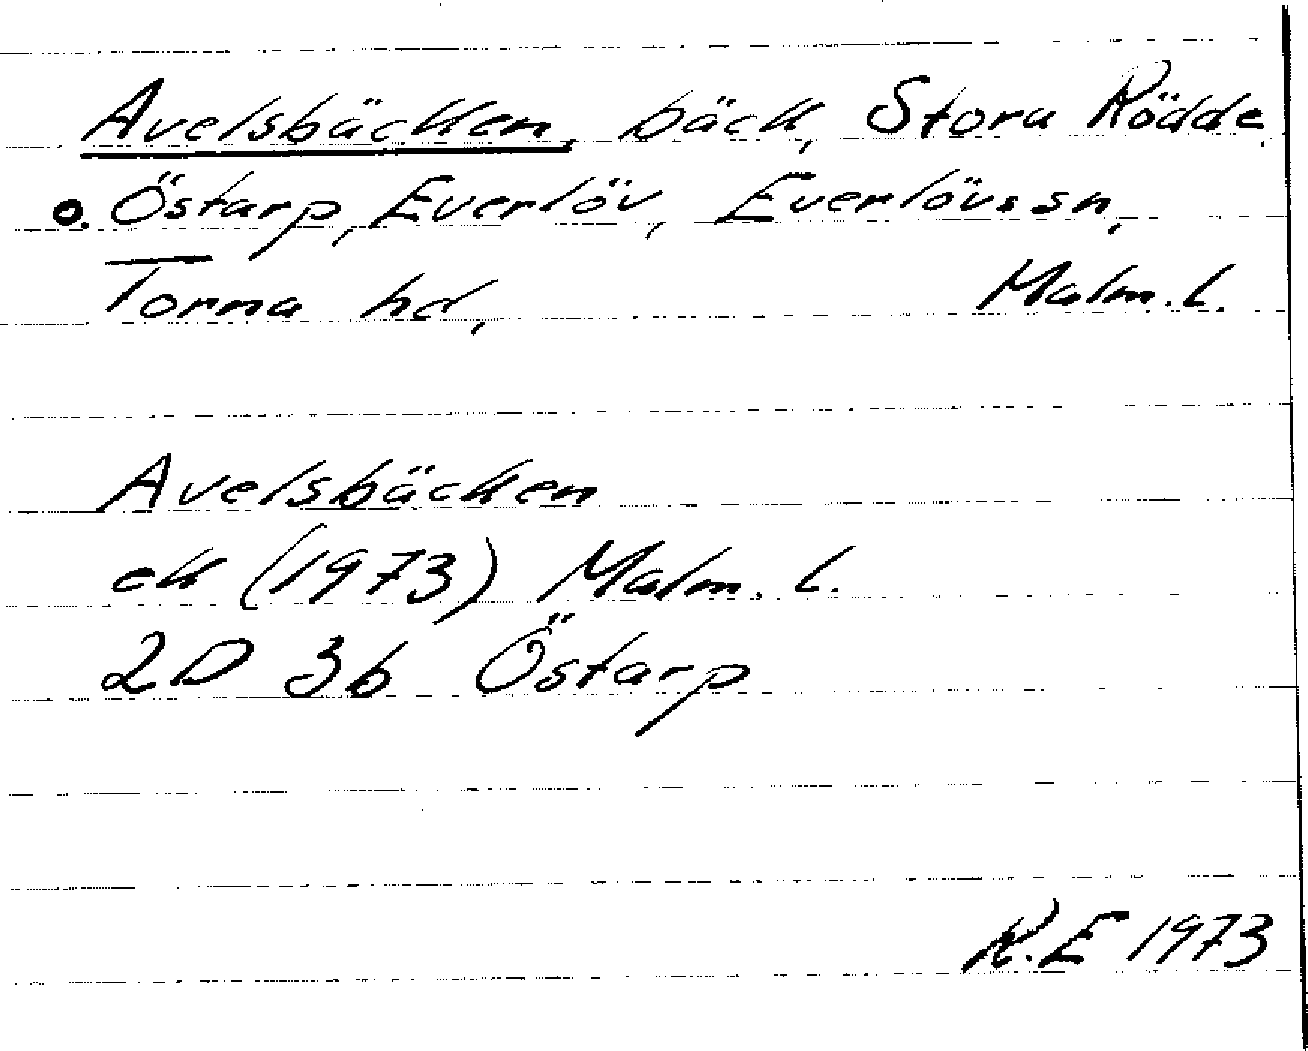 Avelsbäcken, bäck, Stora Rödde,
o. Östarp, Everlöv, Everlövs sn,
Torna hd, Malm. l.
Avelsbäcken
ek (1973) Malm. l.
2D 3b Östarp
R.E 1973